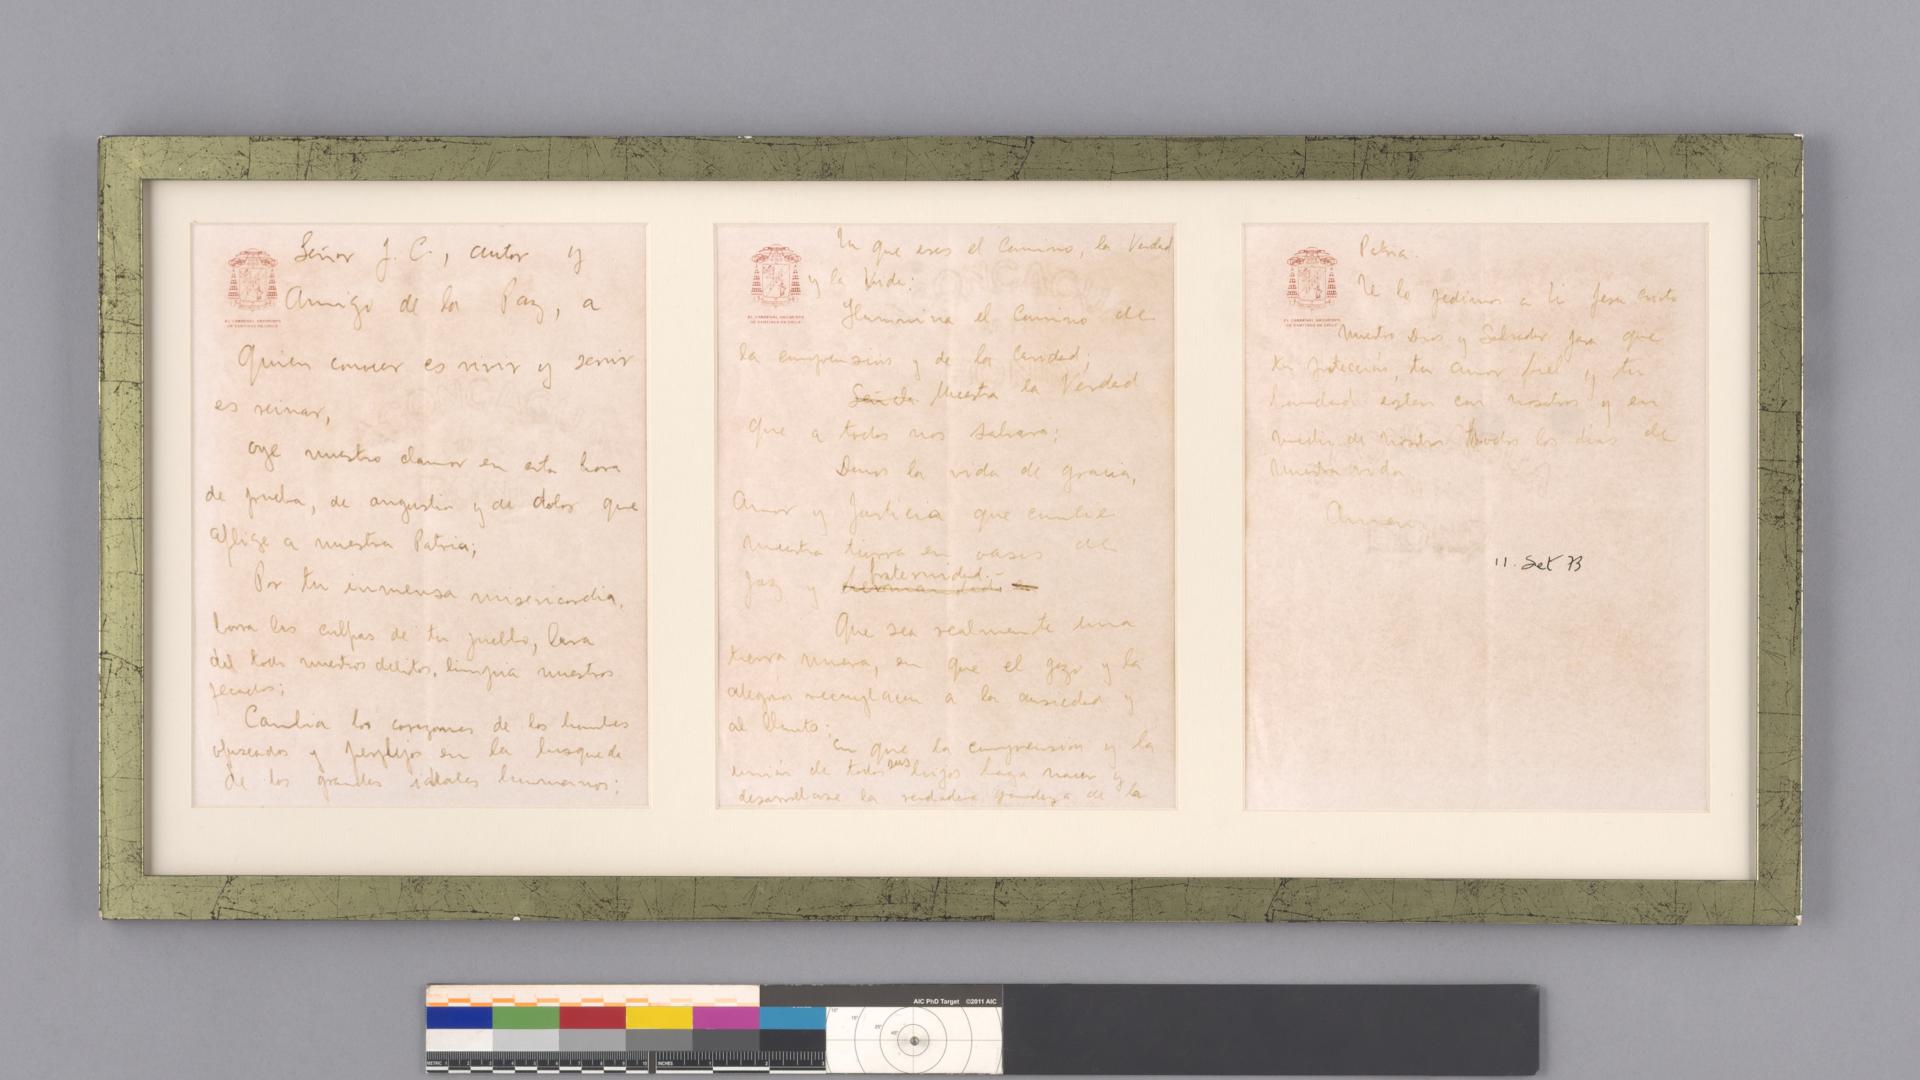 EL CARDENAL ARZOBISPO
DE SANTIAGO DE CHILE
Señor J. C., autor y
Amigo de la Paz, a
Quien conocer es vivir y servir
es reinar,
oye nuestro clamor en esta hora
de prueba, de angustia y de dolor que
aflige a nuestra Patria;
Por tu inmensa misericordia,
borra las culpas de tu pueblo, lava
del todo nuestros delitos, limpia nuestros
pecados;
Cambia los corazones de los hombres
ofuscados y perplejos en la busqueda
de los grandes ideales humanos;
EL CARDENAL ARZOBISPO
DE SANTIAGO DE CHILE
Tu que eres el Camino, la Verdad
y la Vida:
Ilumina el Camino de
la comprensión y de la Caridad;
Muestra la Verdad
que a todos nos salvara;
Danos la vida de gracia,
Amor y Justicia que cambie
nuestra tierra en oasis de
fraternidad.-
paz y
Que sea realmente una
tierra nueva, en que el gozo y la
alegria reemplacen a la ansiedad y
al llanto;
en que la comprension y la
unión de todos sus hijos haga nacer y
desarrollarse la verdadera grandeza de la
EL CARDENAL ARZOBISPO
DE SANTIAGO DE CHILE
Patria.
Te lo pedimos a ti Jesu Cristo
Nuestro Dios y Salvador para que
tu protección, tu amor fiel y tu
bondad esten con nosotros y en
medio de nosotros todos los dias de
nuestra vida
Amen.
11. Set 73
AIC PhD Target ©2011 AIC
METRIC
INCHES